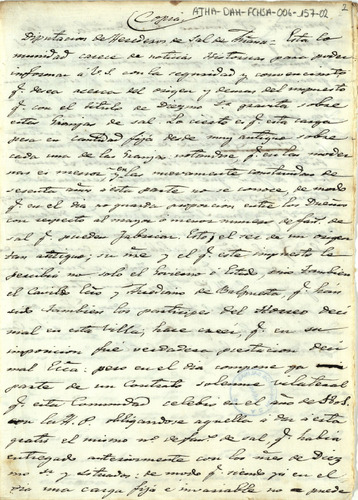 ATHA-DAH-FCHSA-004-157-02
2
(Copia)
Diputacion de Herederos de Sal de Añana = Esta Co
munidad carece de noticias historicas para poder
informar a V.S. con la seguridad y convencimiento
q.e desea acerca del origen y demas del impuesto
q.e con el titulo de Diezmo se quenta sobre
estas Granjas de sal. Lo cierto es q.e esta carga
pesa en cantidad fija desde muy antiguo sobre
cada una de las Granjas notandose q.e en la moder
nas es menor y en las nuevamente construidas de
sesenta años a esta parte no se conoce, de modo
q.e en el dia no guarda proporcion entre los Dueños
con respecto al mayor o menor numero de fan.s de
sal q.e pueden fabricar. Esto, el ser de un origen
tan antiguo, su nre y el q.e este impuesto le
percibia no solo el Soberano o Estado sino tambien
el Cavildo Ecco y Herederos de q.e han
sido tambien los participes del Acerbo deci
mal en esta Villa, hace creer, q.e en su
imposicion fué verdadera prestacion deci
mal Ecca: pero en el dia compone ya
parte de un Contrato solemne vilateral
q.e esta Comunidad celebró en el año de
con la H. P. obligandose aquella a dar a esta
gratis el mismo no de fan.s de sal q.e habia
entregado anteriormente con los mes de Diez
mo y Situados: de modo q.e siendo ya en el
dia una carga fija e invariable no puede